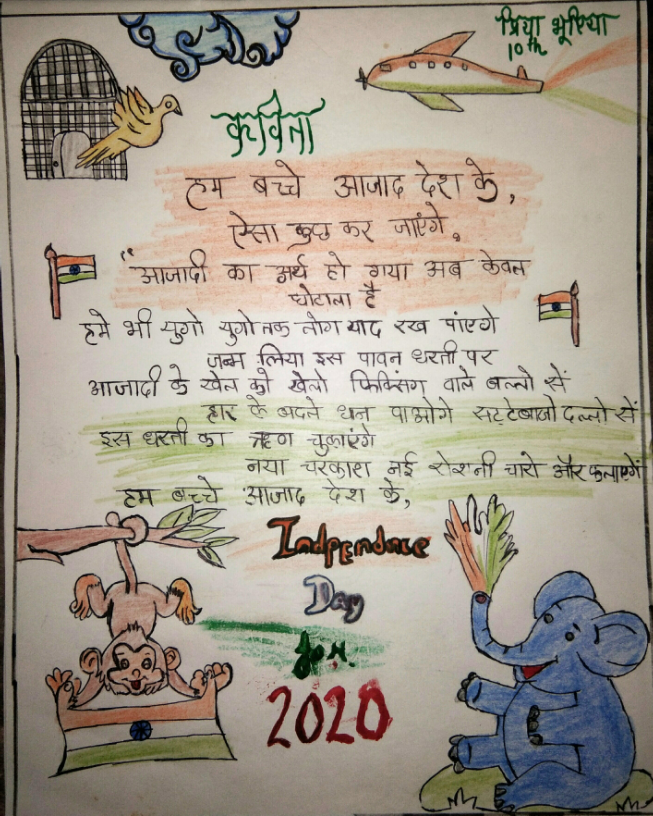 प्रिया भूरिया
10th
कविता
हम बच्चे आजाद देश के,
ऐसा कुछ कर जाएंगे,
"आजादी का अर्थ हो गया अब केवल
घोटाला है
हमे भी युगो युगो तक लोग याद रख पांएगे
जन्म लिया इस पावन धरती पर
आजादी के खेल को खेलो फिक्सिंग वाले बल्लो सें
हार के बदले धन पाओगे सट्टेबाजो दल्लो सें
इस धरती का ऋण चुकाएंगे
नया परकाश नई रोशनी चारो और फलाएगें
हम बच्चे आजाद देश के,
Indpendnce
Day
2020